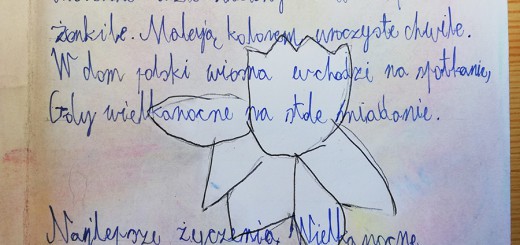 żonkile. Malują kolorem uroczyste chwile.
W dom polski wiosna wchodzi na spotkanie,
Gdy wielkanocne na stole śniadanie.
Najlepsze życzenia Wielkanocne